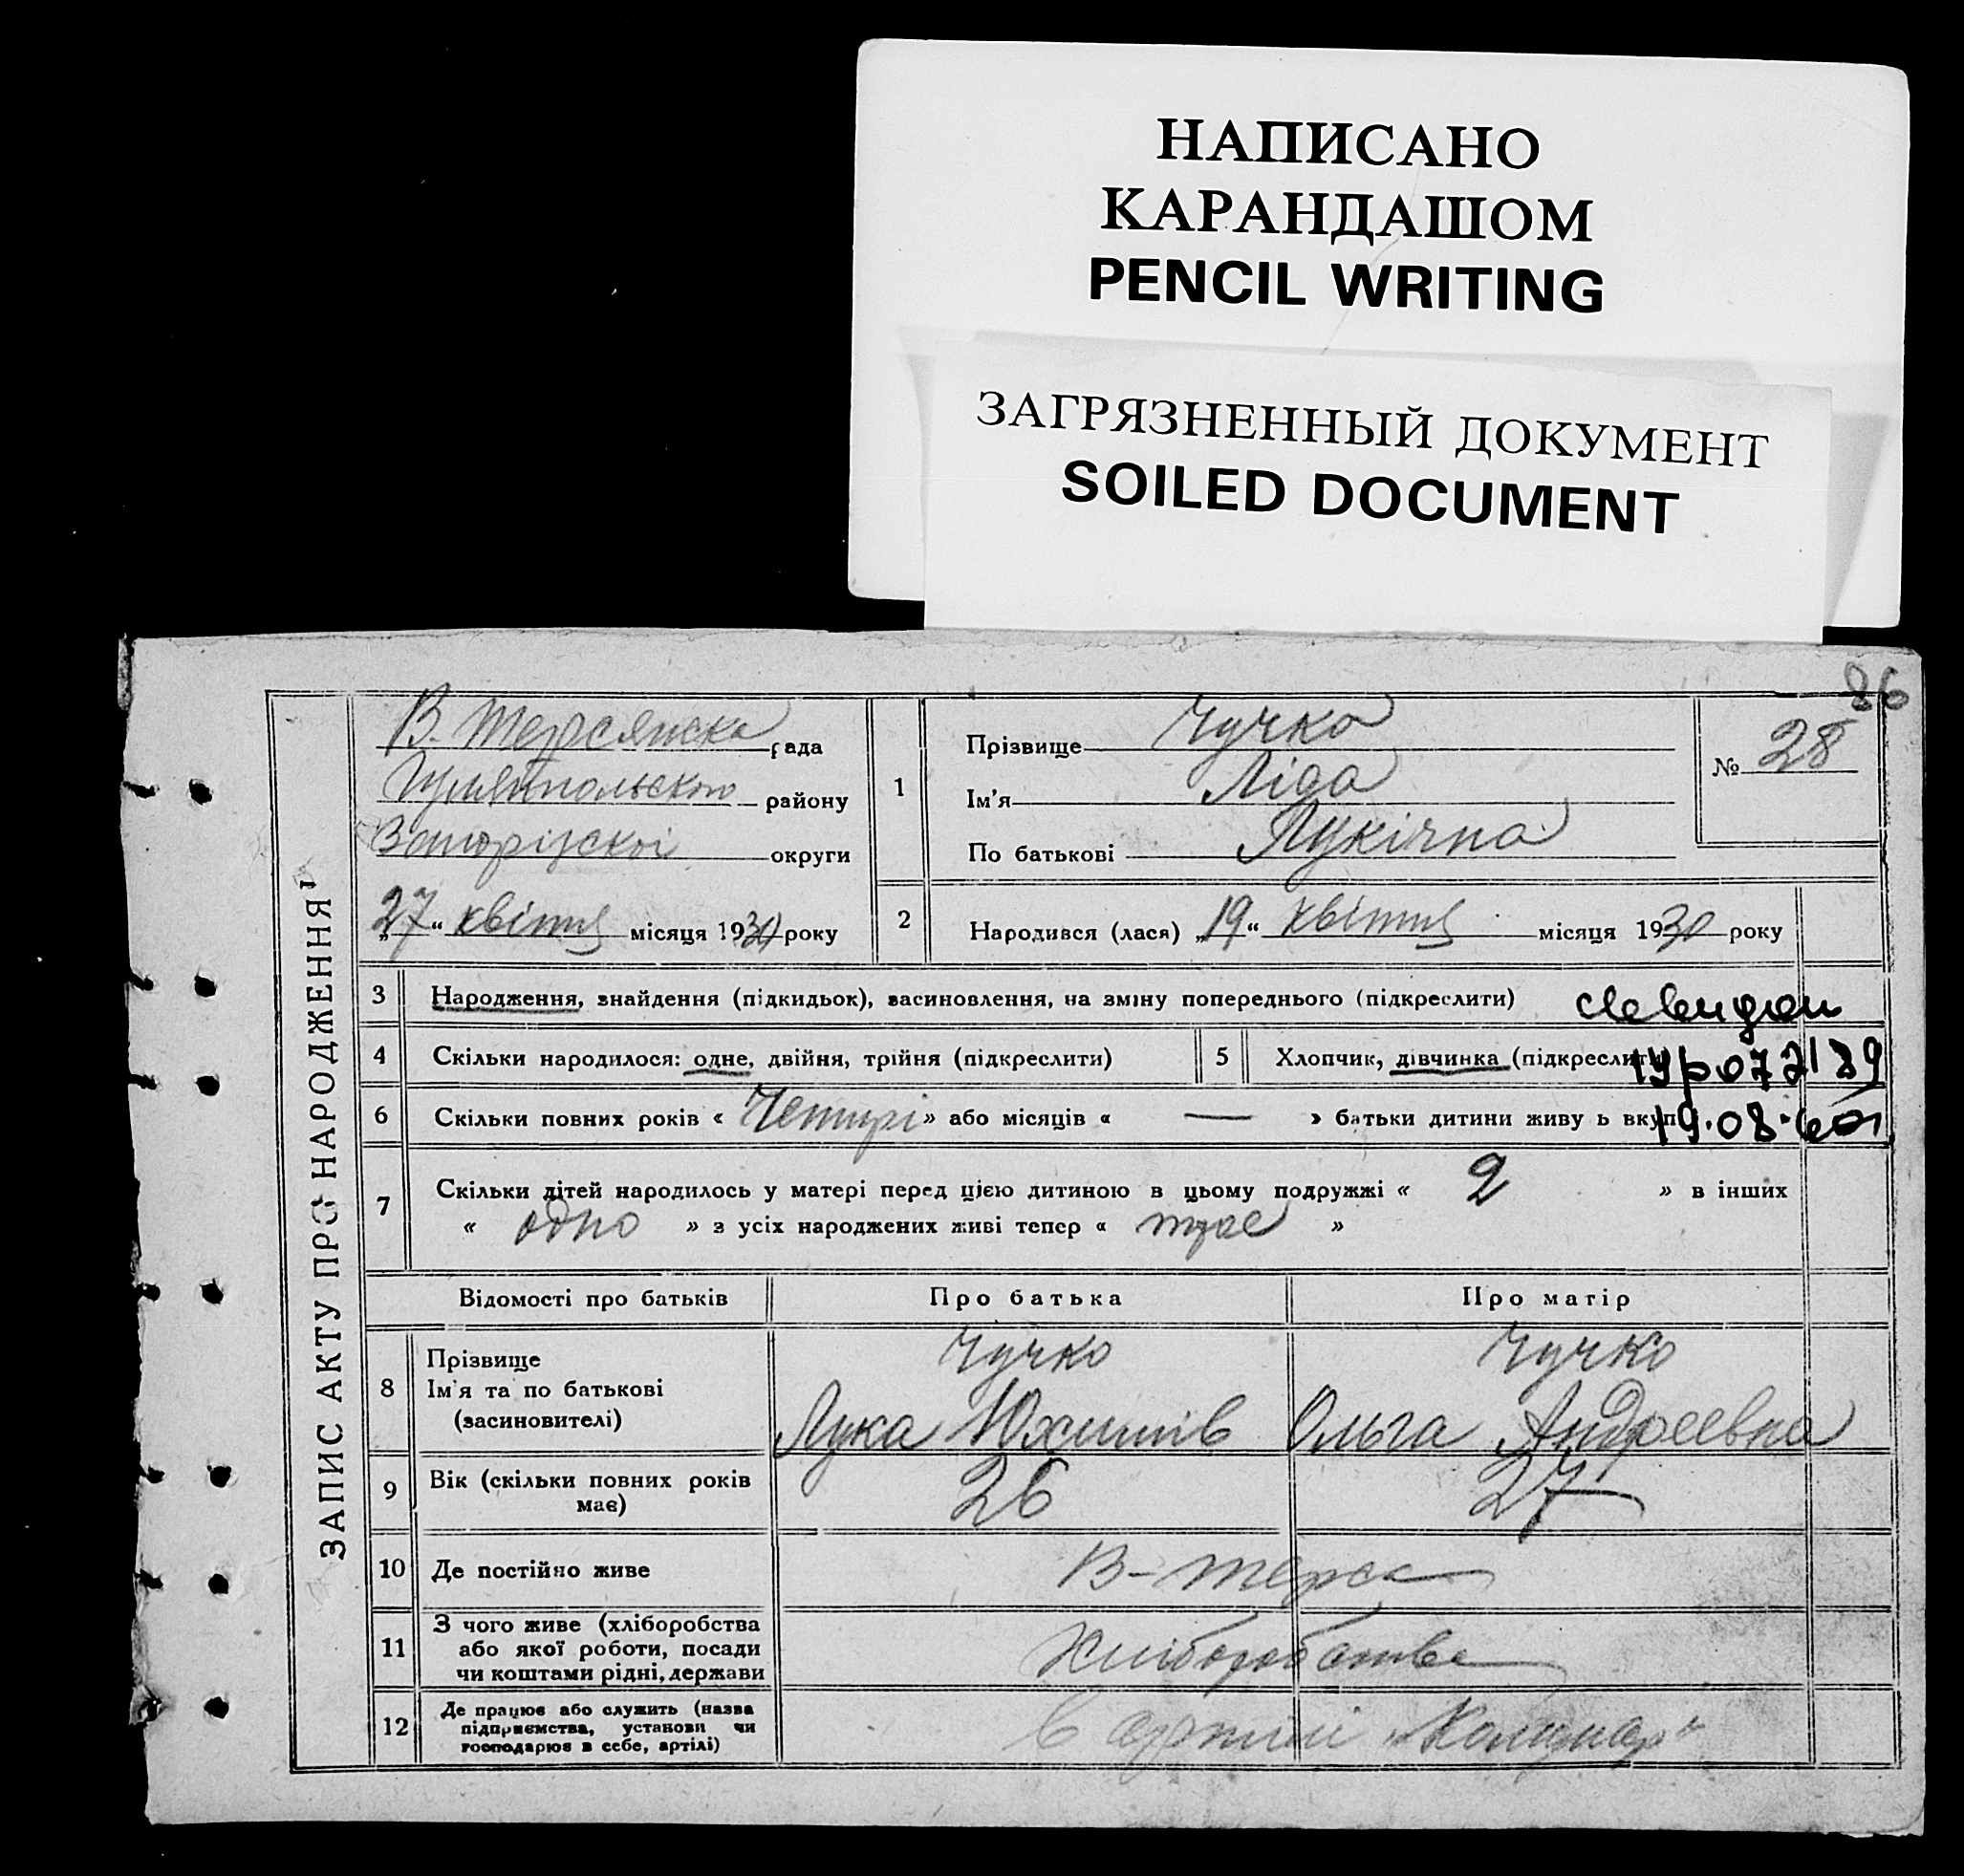 НАПИСАНО
КАРАНДАШОМ
PENCIL WRITING
ЗАГРЯЗНЕННЫЙ ДОКУМЕНТ
SOILED DOCUMENT
86
ЗАПИС АКТУ ПРО НАРОДЖЕННЯ
В. Терсянска рада
Гуляйпольского району
Запорізскої округи
„27“ квітня місяця 1930 року
1
Прізвище Чучко
Ім'я Ліда
По батькові Лукічна
№ 28
2
Народився (лася) „19“ квітня місяця 1930 року
3 Народження, знайдення (підкидьок), засиновлення, на зміну попереднього (підкреслити)
4 Скільки народилося: одне, двійня, трійня (підкреслити)
5 Хлопчик, дівчинка (підкреслити)
6 Скільки повних років « Четирі » або місяців « — » батьки дитини живу ь вкуп
19.08.
7 Скільки дітей народилось у матері перед цією дитиною в цьому подружжі « 2 » в інших
« одно » з усіх народжених живі тепер « троє »
Відомості про батьків
Про батька
Про матір
8 Прізвище
Ім'я та по батькові
(засиновителі)
Чучко
Лука Юхимів
Чучко
Ольга Андреевна
9 Вік (скільки повних років
має)
26
27
10 Де постійно живе
В-Терса
11 З чого живе (хліборобства
або якої роботи, посади
чи коштами рідні, держави
Хліборобства
12 Де працює або служить (назва
підприємства, установи чи
господарює в себе, артілі)
В артилі